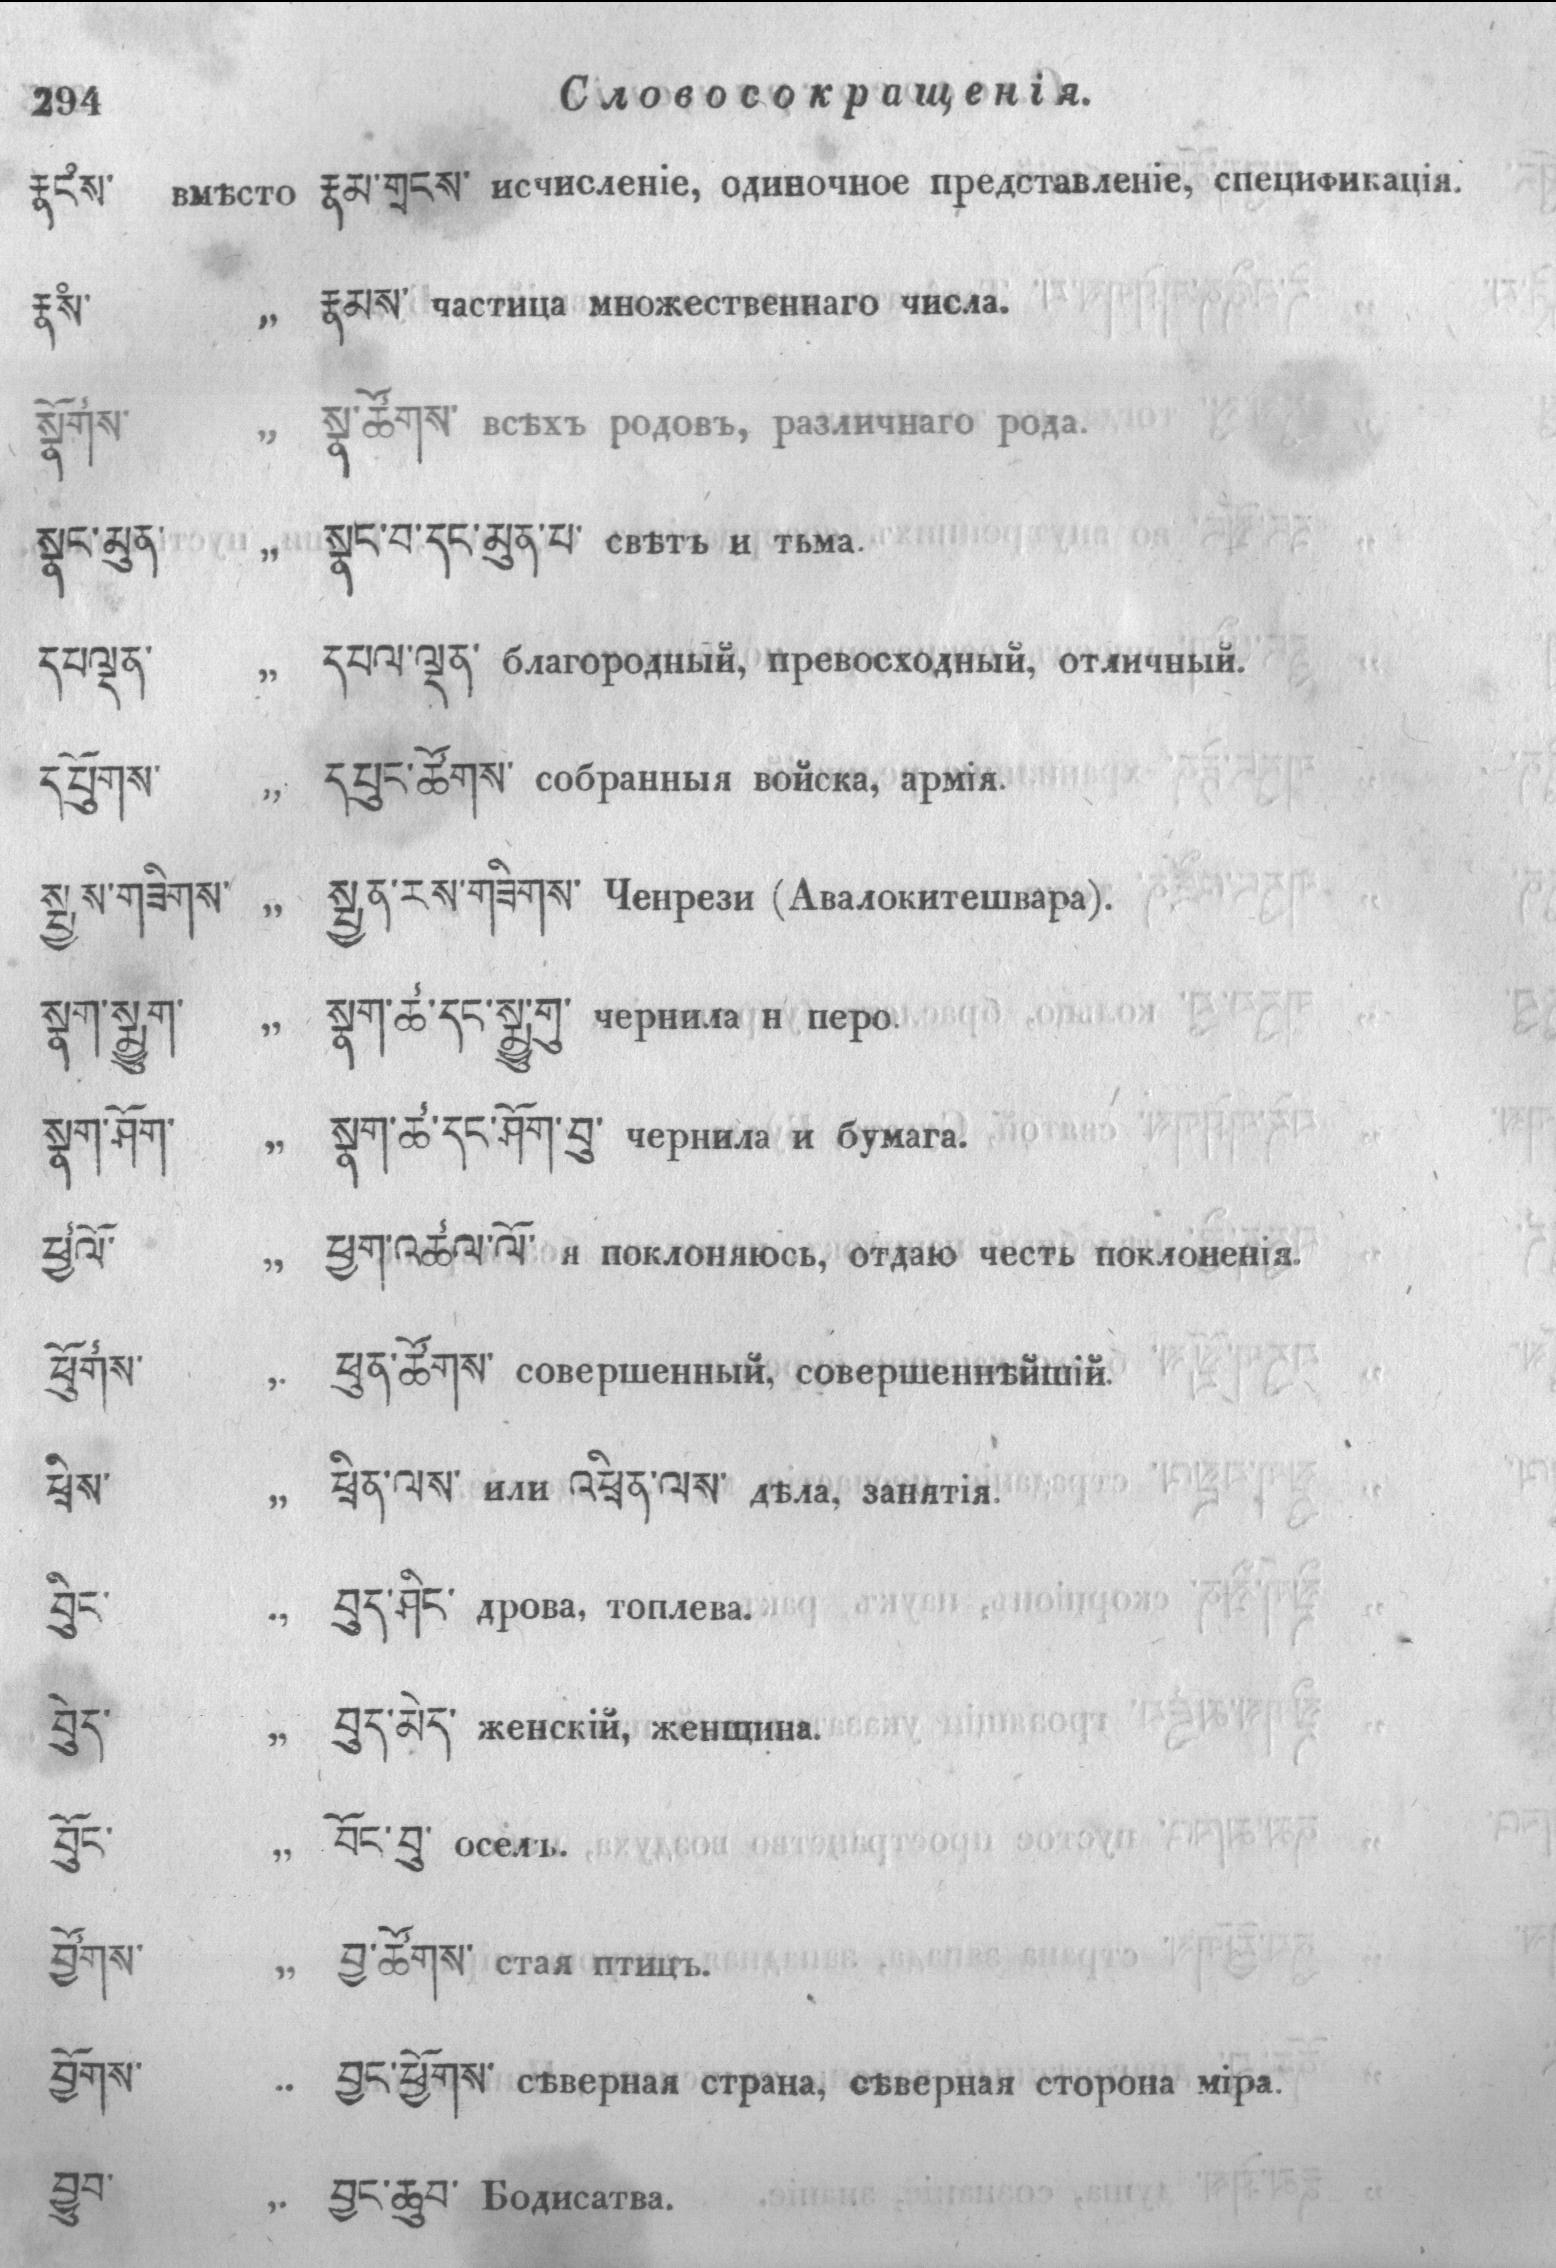 294 Словосокращенія.
རྣངྃས་ вмѣсто རྣམ་གྲངས་ исчисленіе, одиночное представленіе, спецификація.
རྣསྃ་ „ རྣམས་ частица множественнаго числа.
སྣོག༹ས་ „ སྣ་ཚོགས་ всѣхъ родовъ, различнаго рода.
སྣང་མུན་ „ སྣང་བ་དང་མུན་པ་ свѣтъ и тьма.
དཔལྡན་ „ དཔལ་ལྡན་ благородный, превосходный, отличный.
དཔོུགས་ „ དཔུང་ཚོགས་ собранныя войска, армія.
སྤྱས་གཟིགས་ „ སྤྱན་རས་གཟིགས་ Ченрези (Авалокитешвара).
སྣག་སྨྱུག་ „ སྣག་ཚ་དང་སྨྱུ་གུ་ чернила и перо.
སྣག་ཤོག་ „ སྣག་ཚ་དང་ཤོག་བུ་ чернила и бумага.
ཕྱ༹ལོ་ „ ཕྱག་འཚལ་ལོ་ я поклоняюсь, отдаю честь поклоненія.
ཕོུག༹ས་ „ ཕུན་ཚོགས་ совершенный, совершеннѣйшій.
ཕྲིས་ „ ཕྲིན་ལས་ или འཕྲིན་ལས་ дѣла, занятія.
བིུང་ „ བུད་ཤིང་ дрова, топлева.
བེུད་ „ བུད་མེད་ женскій, женщина.
བོུང་ „ བོང་བུ་ оселъ.
བྱོགས་ „ བྱ་ཚོགས་ стая птицъ.
བྱོགས་ „ བྱང་ཕྱོགས་ сѣверная страна, сѣверная сторона міра.
བྱུབ་ „ བྱང་ཆུབ་ Бодисатва.